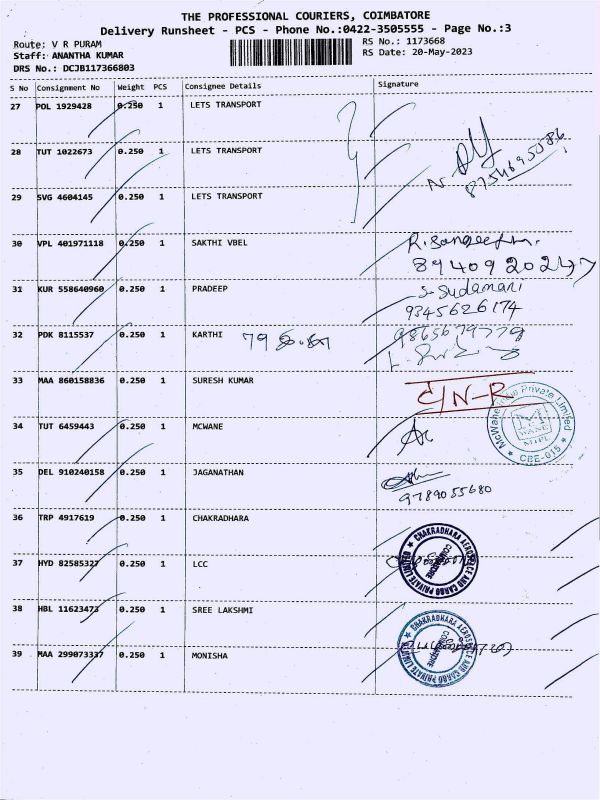 THE PROFESSIONAL COURIERS, COIMBATORE
Delivery Runsheet - PCS - Phone No.:0422-3505555 - Page No.:3
Route: V R PURAM
RS No.: 1173668
Staff: ANANTHA KUMAR
RS Date: 20-May-2023
DRS No.: DCJB117366803
S No Consignment No Weight PCS Consignee Details Signature
27 POL 1929428 0.250 1 LETS TRANSPORT
28 TUT 1022673 0.250 1 LETS TRANSPORT
8754695086
29 SVG 4604145 0.250 1 LETS TRANSPORT
30 VPL 401971118 0.250 1 SAKTHI VBEL R. Sangeetha.
8940920247
31 KUR 558640960 0.250 1 PRADEEP S. Sudamani
9345626174
32 PDK 8115537 0.250 1 KARTHI 79
33 MAA 860158836 0.250 1 SURESH KUMAR C/N-R
34 TUT 6459443 0.250 1 MCWANE
McWane India Private Limited
MWANE
MIPL
CBE-015
35 DEL 910240158 0.250 1 JAGANATHAN
9789055680
36 TRP 4917619 0.250 1 CHAKRADHARA
CHAKRADHARA AEROSPACE AND CARGO PRIVATE LIMITED
COIMBATORE
37 HYD 82585327 0.250 1 LCC
38 HBL 11623473 0.250 1 SREE LAKSHMI
CHAKRADHARA AEROSPACE AND CARGO PRIVATE LIMITED
COIMBATORE
39 MAA 299073337 0.250 1 MONISHA